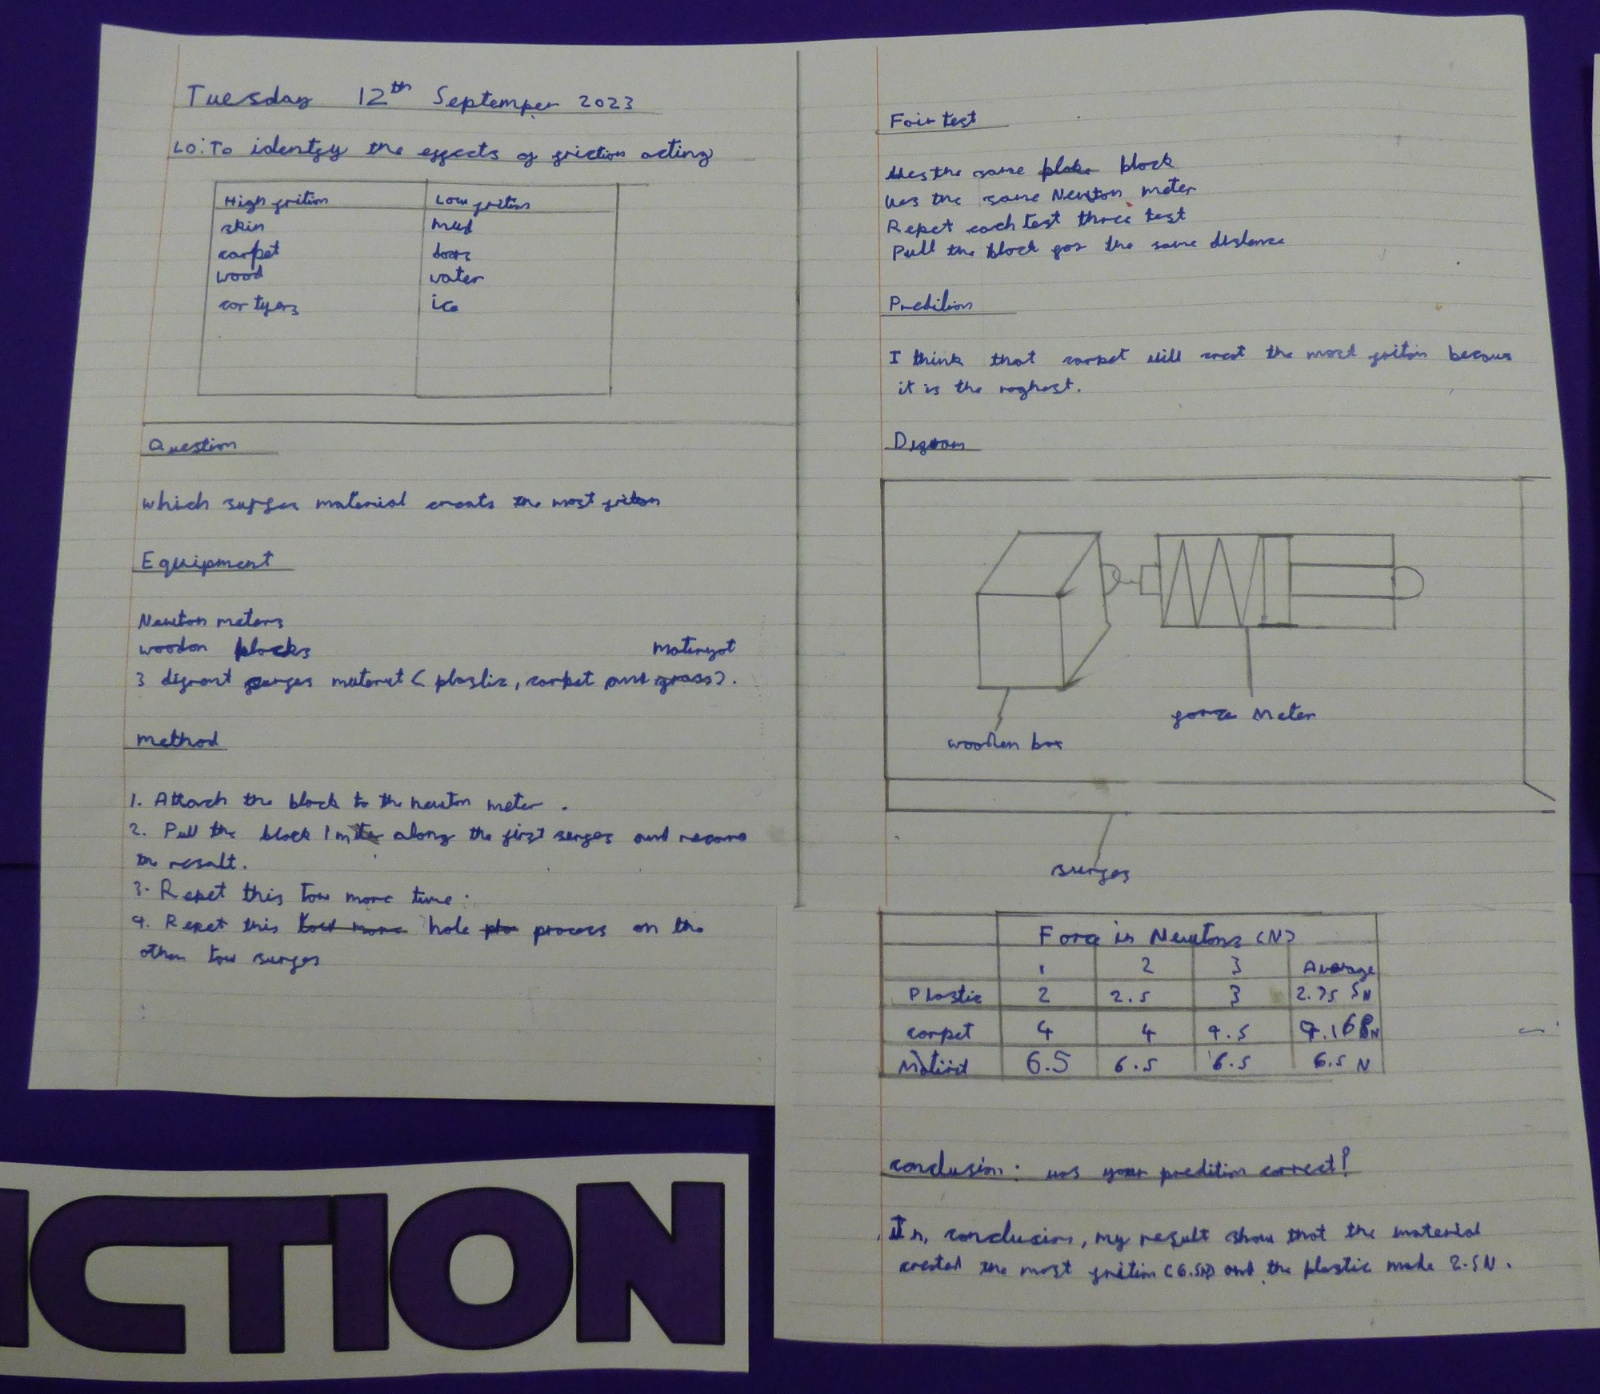 Tuesday 12th Septemper 2023
LO: To identfy the effects of friction acting
High frition Low frition
skin mud
carpet doors
wood water
car tyers ice
Question
which surfes matenial creats the most frition
Equipment
Newton meters
wooden blocks
3 difront surfes materat (plastic, carpet and grass).
method
1. Attach the block to the newton meter.
2. Pull the block 1m along the first serfes and recored
the resalt.
3. Repet this tow more time.
4. Repet this tow more hole process on the
other tow surfes
Fair test
Ues the same block
Ues the same Newton meter
Repet each test three test
Pull the block for the same distance
Predition
I think that carpet will creat the most frition becaus
it is the roghest.
Digram
wooden box
force meter
surfes
Force in Newtons (N)
1 2 3 Average
Plastic 2 2.5 3 N
carpet 4 4 4.5 N
6.5 6.5 6.5 6.5 N
conclusion: was your predition correct?
In, conclusion, my result show that the material
created the most frition (6.5N) and the plastic made 2.5N.
ICTION